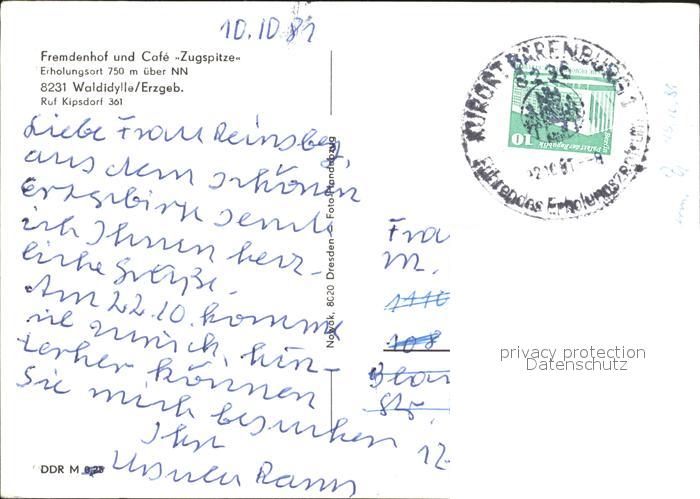 10.10.81
Fremdenhof und Café »Zugspitze«
Erholungsort 750 m über NN
8231 Waldidylle/Erzgeb.
Ruf Kipsdorf 361
Liebe Frau Reinsberg,
aus dem schönen
Erzgebirge sende
ich Ihnen herz-
liche Grüße.
Am 22.10. komme
ich zurück, hin-
terher können
Sie mich besuchen
Ihre
Ursula
DDR M
Nowak, 8020 Dresden — Foto Handabzug
KURORT BÄRENBURG 1
8230
10
Berlin
Palast der Republik
Führendes Erholungszentrum
Frau
M.
1110
108
Str.
12-
privacy protection
Datenschutz